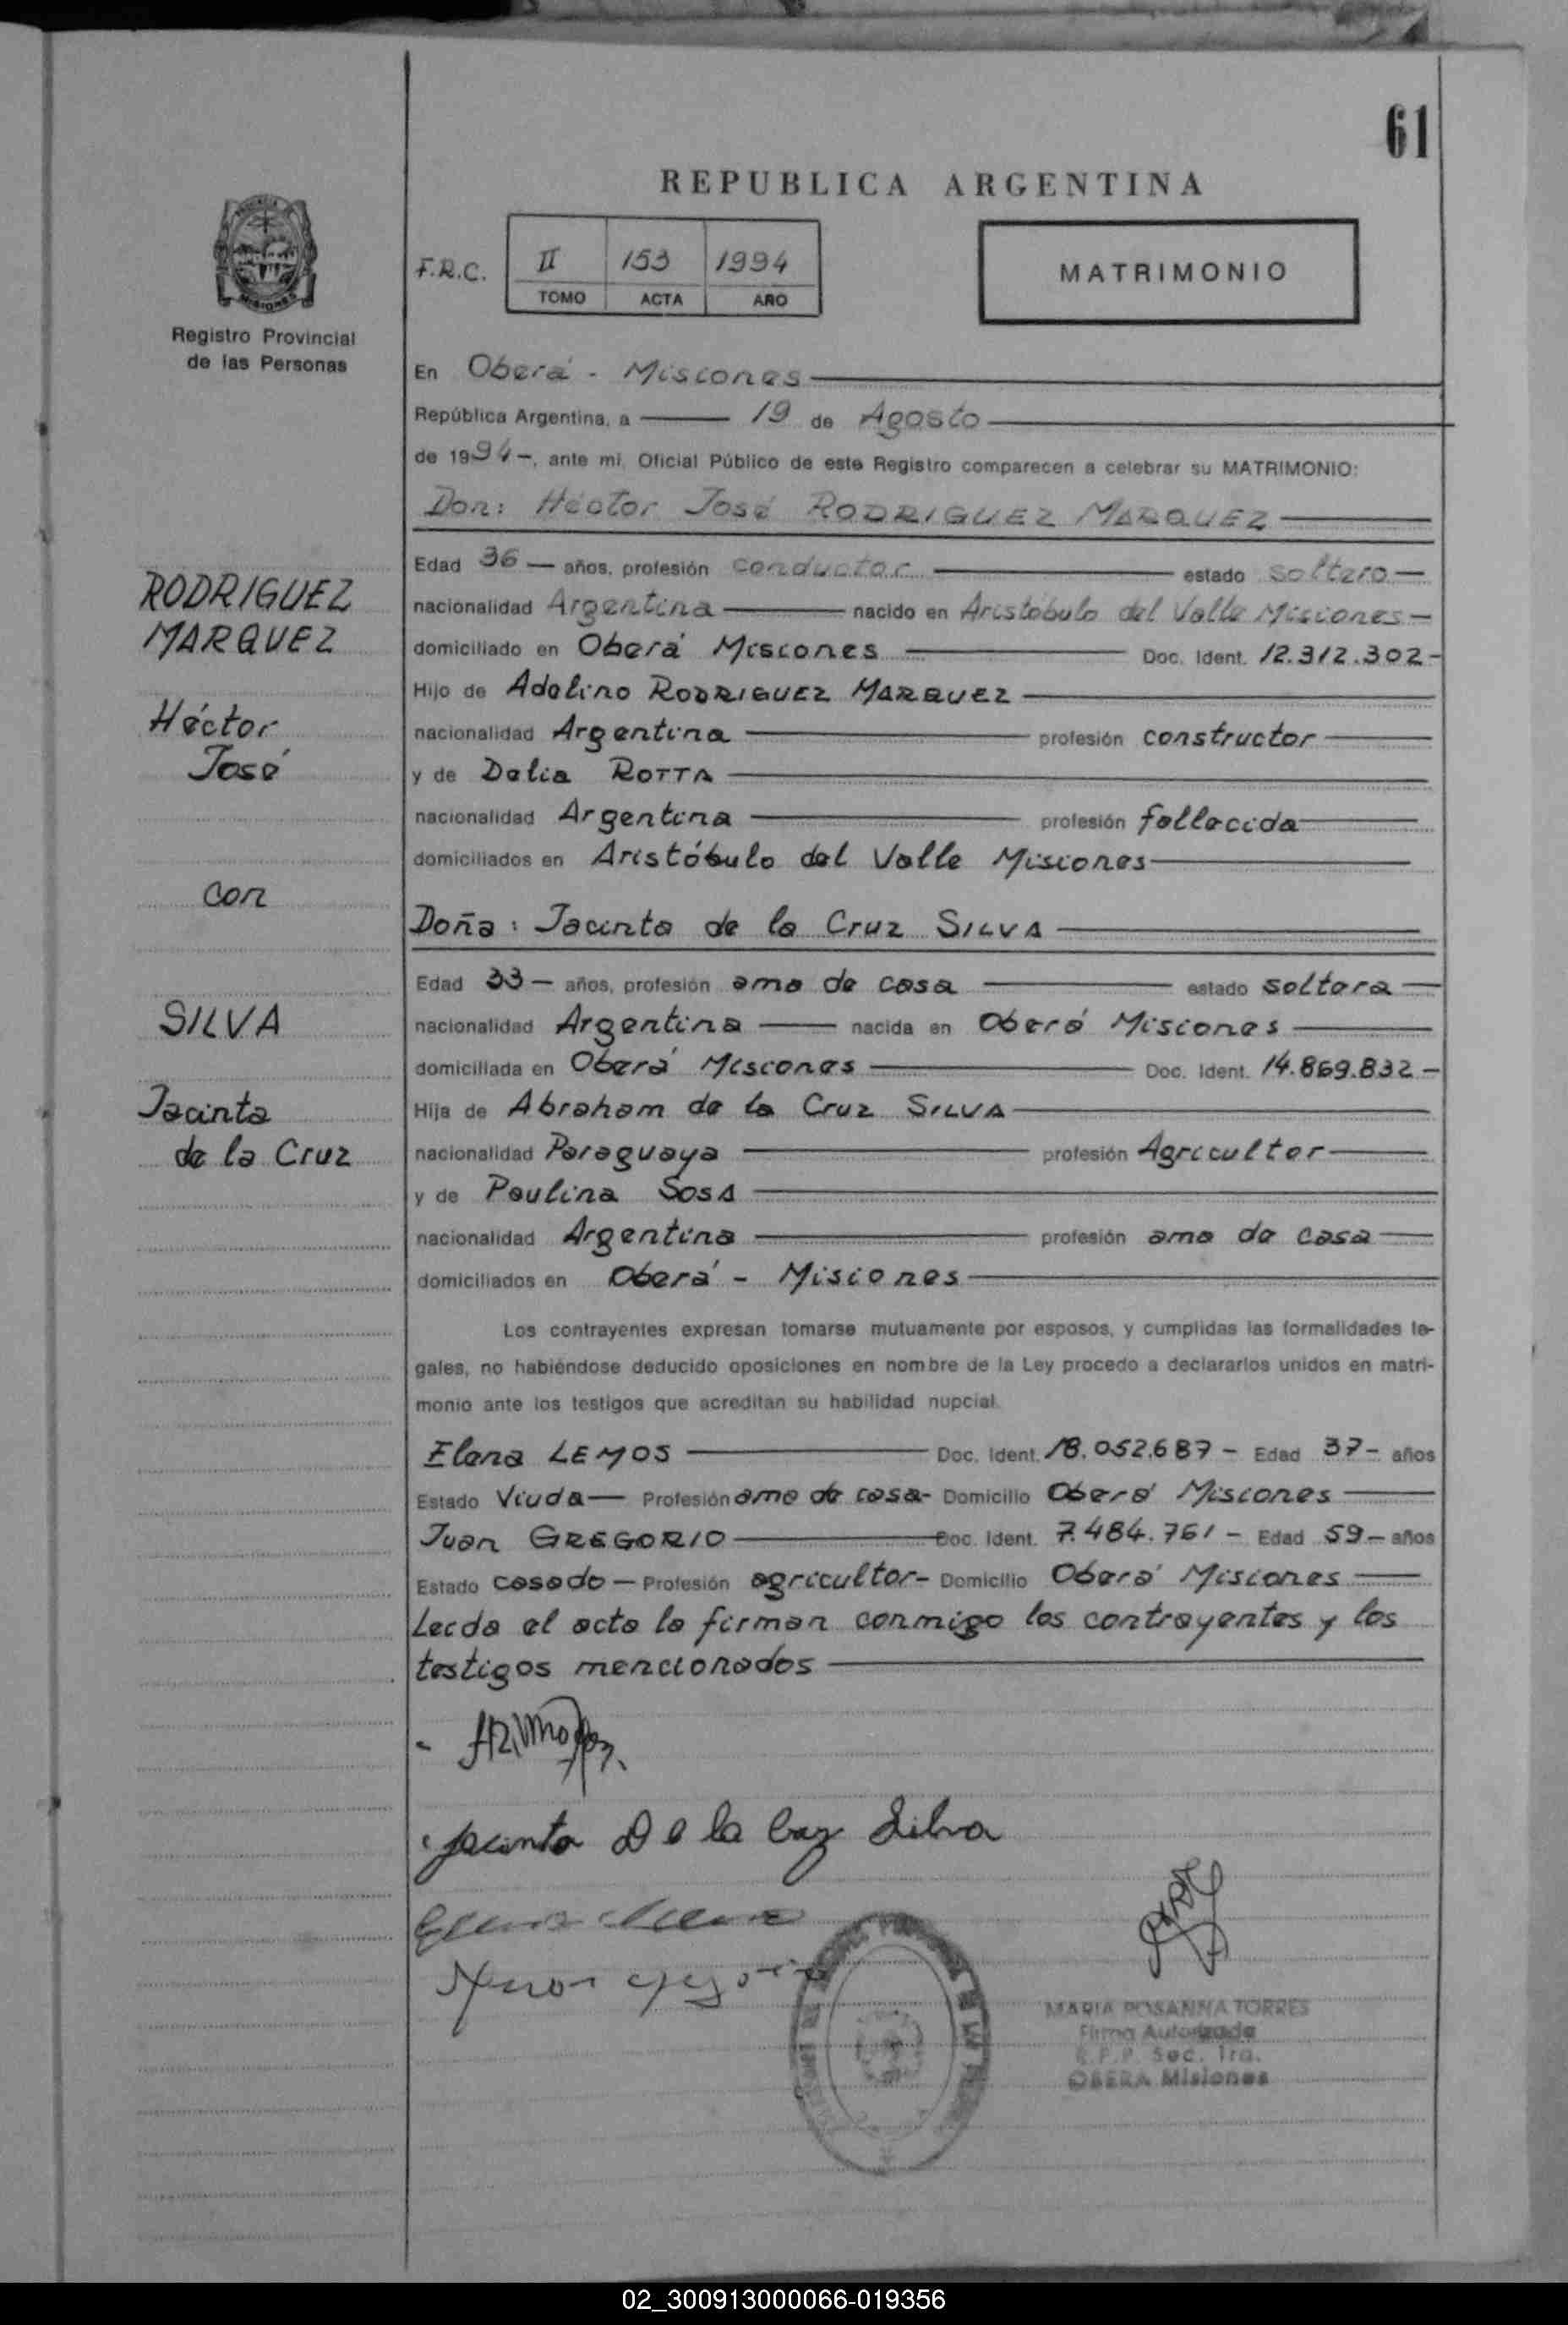 61
REPUBLICA ARGENTINA
F.R.C. II 153 1994
TOMO ACTA AÑO
MATRIMONIO
MISIONES
Registro Provincial
de las Personas
En Oberá - Misiones
República Argentina, a 19 de Agosto
de 1994-, ante mi, Oficial Público de este Registro comparecen a celebrar su MATRIMONIO:
Don: Héctor José RODRIGUEZ MARQUEZ
Edad 36 — años, profesión conductor estado soltero —
nacionalidad Argentina nacido en Aristóbulo del Valle Misiones —
domiciliado en Oberá Misiones Doc. Ident. 12.312.302-
Hijo de Adelino RODRIGUEZ MARQUEZ
nacionalidad Argentina profesión constructor
y de Delia ROTTA
nacionalidad Argentina profesión fallecida
domiciliados en Aristóbulo del Valle Misiones
Doña: Jacinta de la Cruz SILVA
Edad 33 — años, profesión ama de casa estado soltera —
nacionalidad Argentina — nacida en Oberá Misiones
domiciliada en Oberá Misiones Doc. Ident. 14.869.832 -
Hija de Abraham de la Cruz SILVA
nacionalidad Paraguaya profesión Agricultor
y de Paulina SOSA
nacionalidad Argentina profesión ama de casa
domiciliados en Oberá - Misiones
Los contrayentes expresan tomarse mutuamente por esposos, y cumplidas las formalidades le-
gales, no habiéndose deducido oposiciones en nombre de la Ley procedo a declararlos unidos en matri-
monio ante los testigos que acreditan su habilidad nupcial.
Elena LEMOS Doc. Ident. 18.052.687 - Edad 37- años
Estado Viuda — Profesión ama de casa - Domicilio Oberá Misiones
Juan GREGORIO Doc. Ident. 7.484.761 - Edad 59 - años
Estado casado — Profesión agricultor - Domicilio Oberá Misiones
Leída el acta la firman conmigo los contrayentes y los
testigos mencionados
RODRIGUEZ
MARQUEZ
Héctor
José
con
SILVA
Jacinta
de la Cruz
Jacinta De la Cruz Silva
MARIA ROSANNA TORRES
Firma Autorizada
R.P.P. Sec. 1ra.
OBERA Misiones
02_300913000066-019356